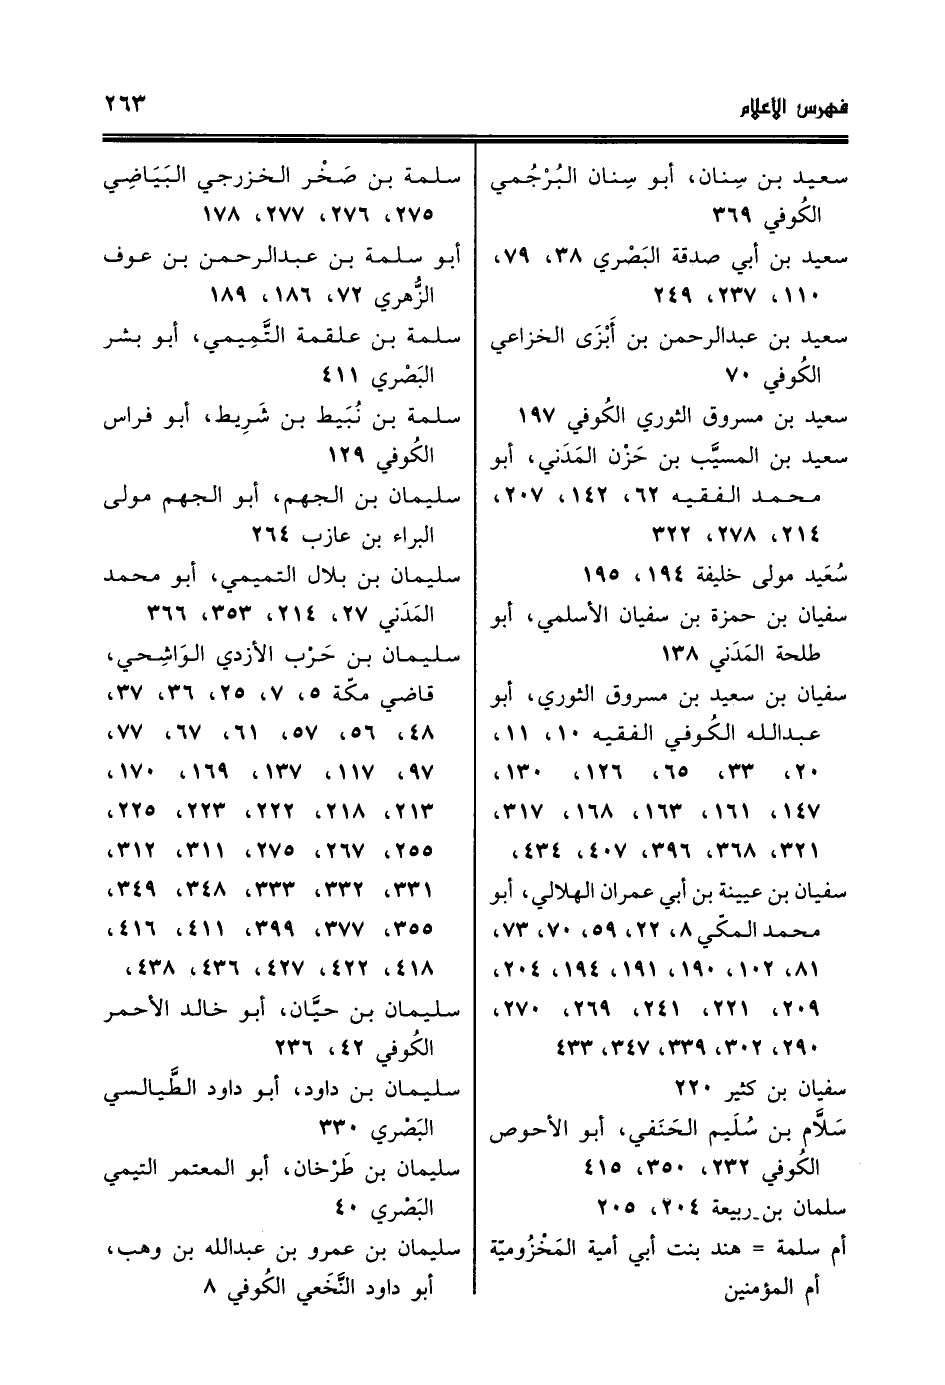 فهرس الأعلام
٢٦٣
سعيد بن سِنان، أبو سِنان البُرْجُمي
الكُوفي ٣٦٩
سعيد بن أبي صدقة البَصْري ٣٨، ٧٩،
١١٠، ٢٣٧، ٢٤٩
سعيد بن عبدالرحمن بن أَبْزَى الخزاعي
الكُوفي ٧٠
سعيد بن مسروق الثوري الكُوفي ١٩٧
سعيد بن المسيَّب بن حَزْن المَدَني، أبو
محمد الفقيه ٦٢، ١٤٢، ٢٠٧،
٢١٤، ٢٧٨، ٣٢٢
سُعَيد مولى خليفة ١٩٤، ١٩٥
سفيان بن حمزة بن سفيان الأسلمي، أبو
طلحة المَدَني ١٣٨
سفيان بن سعيد بن مسروق الثوري، أبو
عبدالله الكُوفي الفقيه ١٠، ١١،
٢٠، ٣٣، ٦٥، ١٢٦، ١٣٠،
١٤٧، ١٦١، ١٦٣، ١٦٨، ٣١٧،
٣٢١، ٣٦٨، ٣٩٦، ٤٠٧، ٤٣٤،
سفيان بن عيينة بن أبي عمران الهلالي، أبو
محمد المكّي ٨، ٢٢، ٥٩، ٧٠، ٧٣،
٨١، ١٠٢، ١٩٠، ١٩١، ١٩٤، ٢٠٤،
٢٠٩، ٢٢١، ٢٤١، ٢٦٩، ٢٧٠،
٢٩٠، ٣٠٢، ٣٣٩، ٣٤٧، ٤٣٣
سفيان بن كثير ٢٢٠
سَلَّام بن سُلَيم الحَنَفي، أبو الأحوص
الكُوفي ٢٣٢، ٣٥٠، ٤١٥
سلمان بن ربيعة ٢٠٤، ٢٠٥
أم سلمة = هند بنت أبي أمية المَخْزُوميّة
أم المؤمنين
سلمة بن صَخْر الخزرجي البَيَاضِي
٢٧٥، ٢٧٦، ٢٧٧، ١٧٨
أبو سلمة بن عبدالرحمن بن عوف
الزُّهري ٧٢، ١٨٦، ١٨٩
سلمة بن علقمة التَّمِيمي، أبو بشر
البَصْري ٤١١
سلمة بن نُبَيط بن شَرِيط، أبو فراس
الكُوفي ١٢٩
سليمان بن الجهم، أبو الجهم مولى
البراء بن عازب ٢٦٤
سليمان بن بلال التميمي، أبو محمد
المَدَني ٢٧، ٢١٤، ٣٥٣، ٣٦٦
سليمان بن حَرْب الأزدي الوَاشِحي،
قاضي مكّة ٥، ٧، ٢٥، ٣٦، ٣٧،
٤٨، ٥٦، ٥٧، ٦١، ٦٧، ٧٧،
٩٧، ١١٧، ١٣٧، ١٦٩، ١٧٠،
٢١٣، ٢١٨، ٢٢٢، ٢٢٣، ٢٢٥،
٢٥٥، ٢٦٧، ٢٧٥، ٣١١، ٣١٢،
٣٣١، ٣٣٢، ٣٣٣، ٣٤٨، ٣٤٩،
٣٥٥، ٣٧٧، ٣٩٩، ٤١١، ٤١٦،
٤١٨، ٤٢٢، ٤٢٧، ٤٣٦، ٤٣٨،
سليمان بن حيَّان، أبو خالد الأحمر
الكُوفي ٤٢، ٢٣٦
سليمان بن داود، أبو داود الطَّيالسي
البَصْري ٣٣٠
سليمان بن طَرْخان، أبو المعتمر التيمي
البَصْري ٤٠
سليمان بن عمرو بن عبدالله بن وهب،
أبو داود النَّخَعي الكُوفي ٨